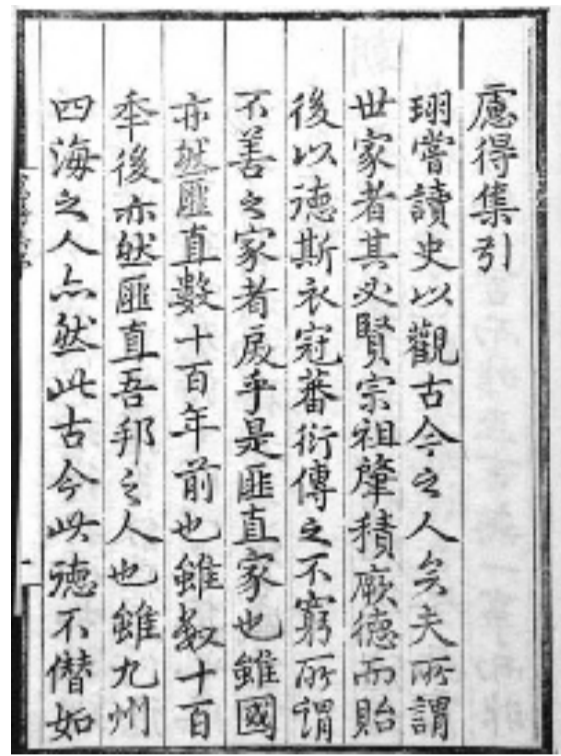 慮得集引
珝嘗讀史以觀古今之人矣夫所謂
世家者其必賢宗祖肇積厥德而貽
後以德斯衣冠蕃衍傳之不窮所謂
不善之家者反乎是匪直家也雖國
亦然匪直數十百年前也雖數十百
年後亦然匪直吾邦之人也雖九州
四海之人亦然此古今此德不僭如